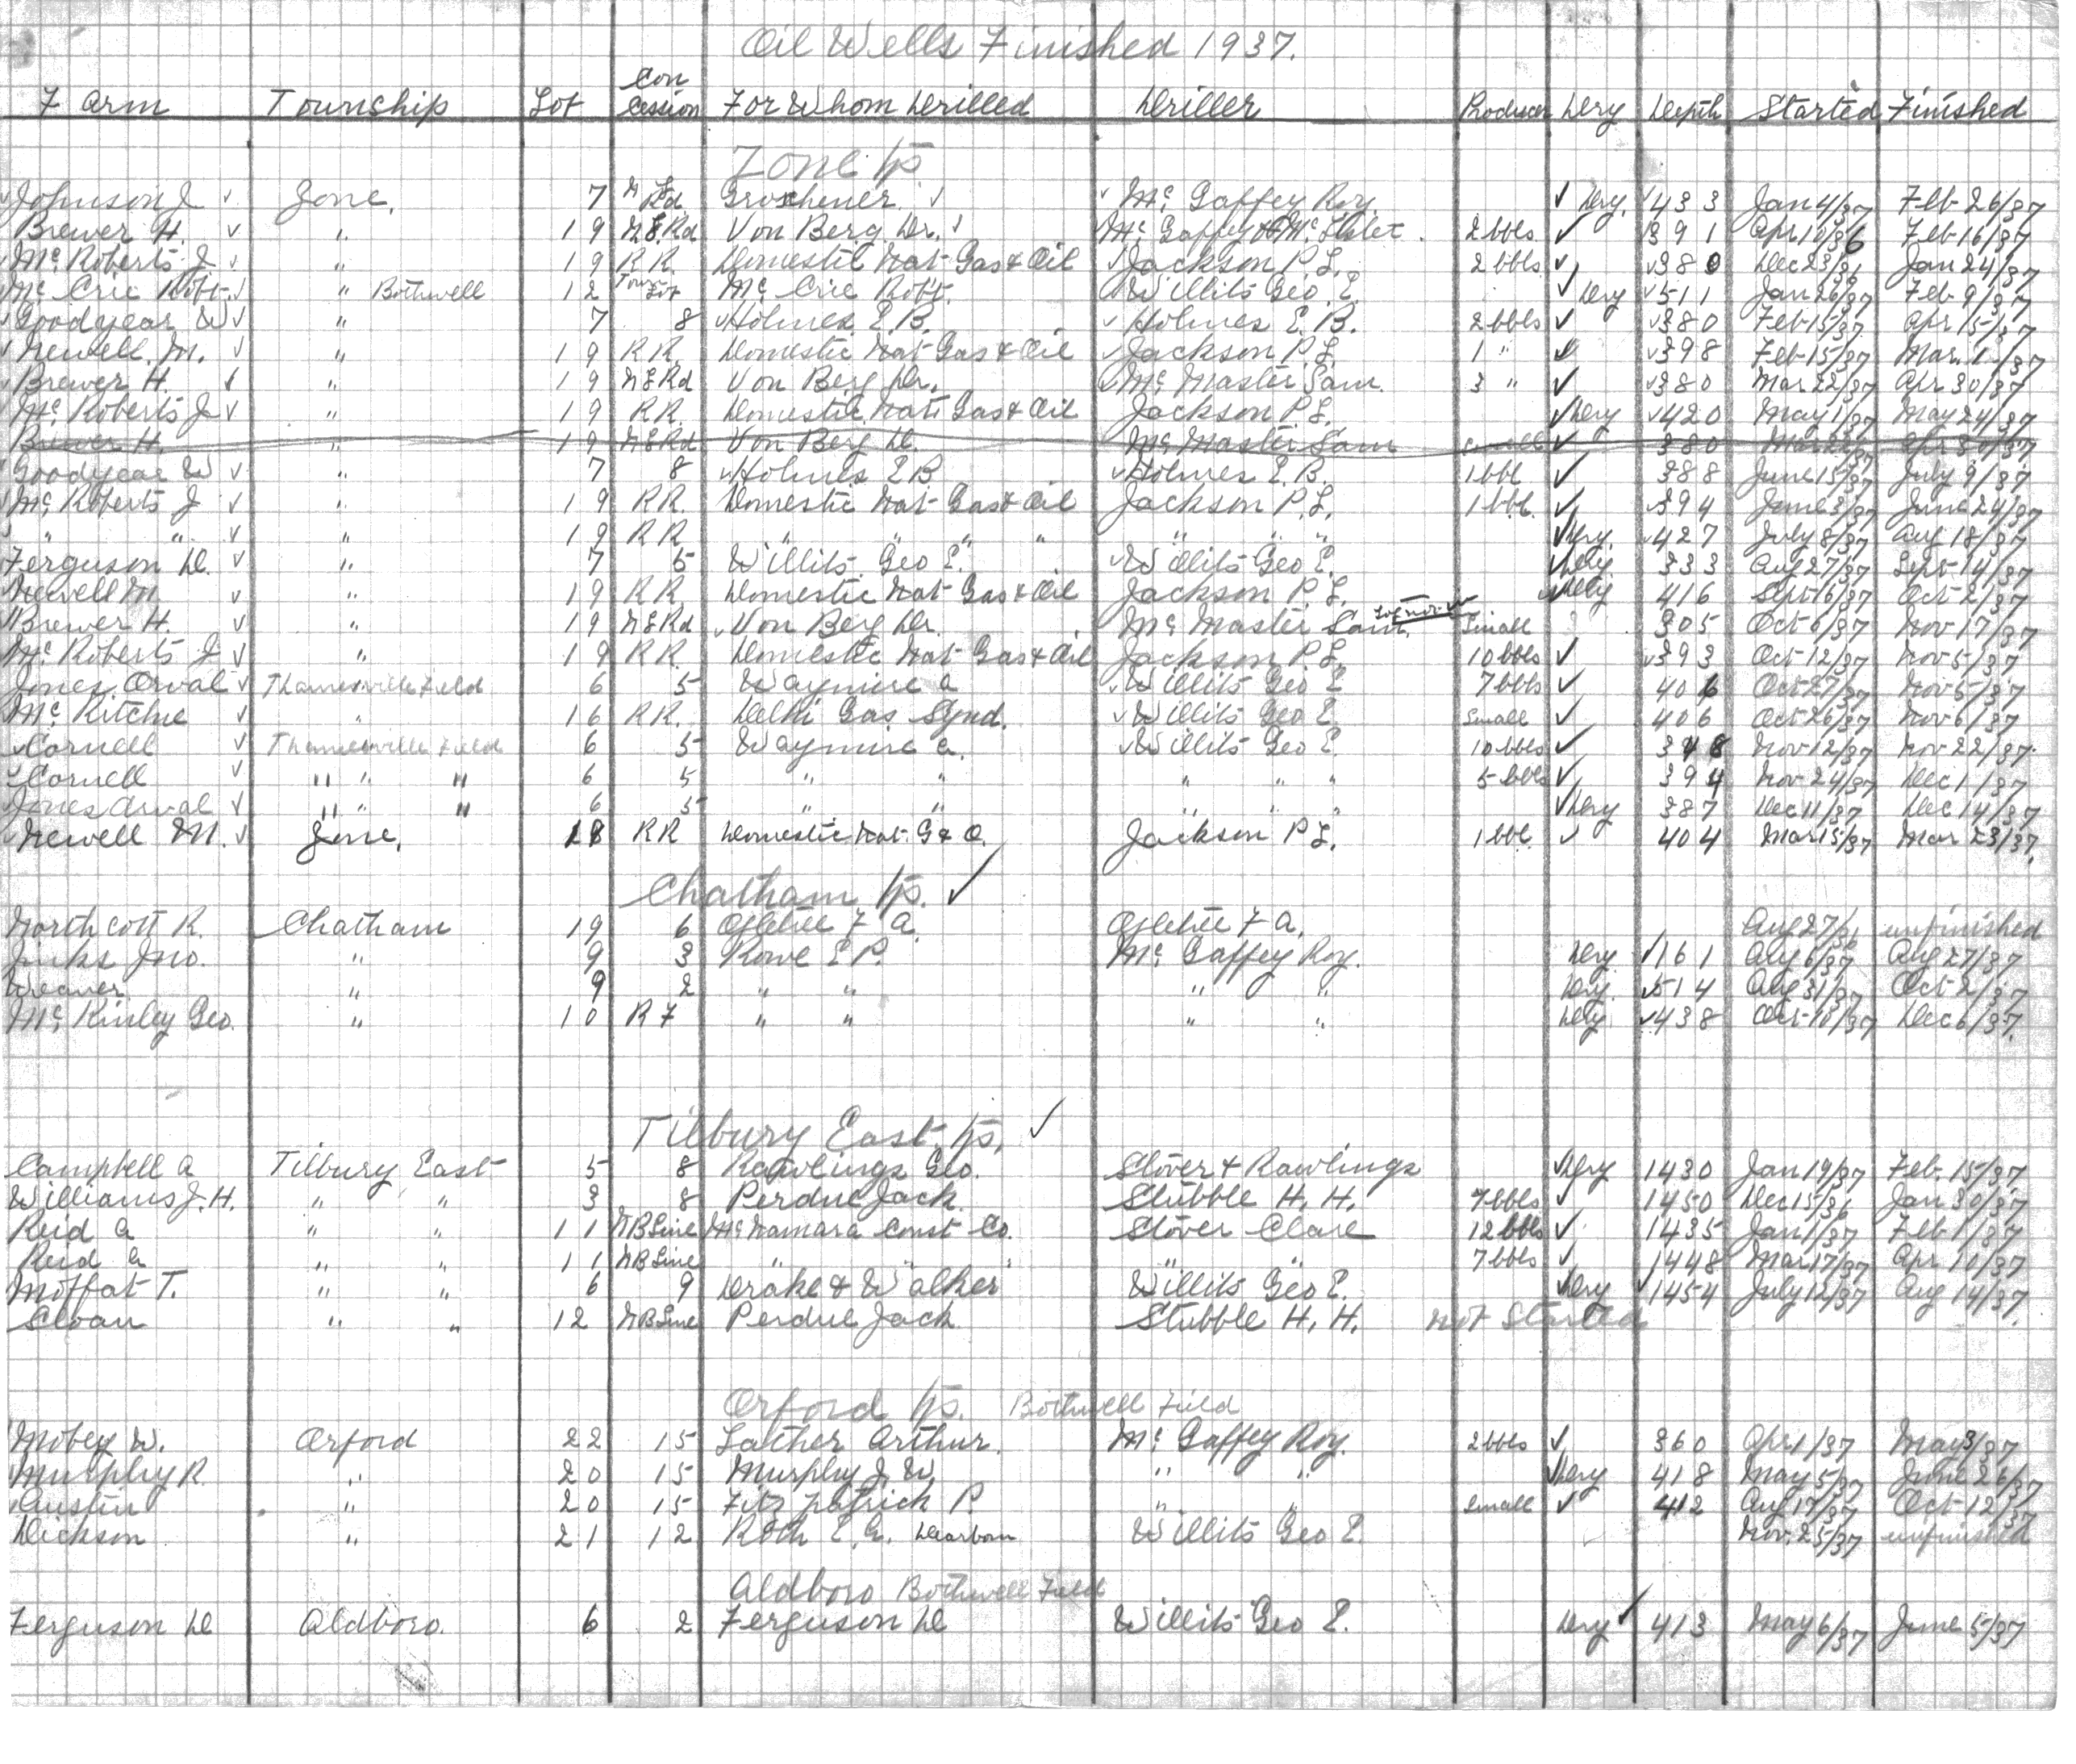 Oil Wells Finished 1937.
Farm Township Lot Con cession For Whom Drilled Driller Producer Dry Depth Started Finished
Zone Tp
✓ Johnson J ✓ Zone, 7 Rd Groschener ✓ ✓ Mc Gaffey Roy ✓ Dry. ✓ 433 Jan 4/37 Feb 26/37
Brewer H. ✓ " 19 Rd Von Berg Dr. ✓ Mc Gaffey 2 bbls ✓ 391 Apr 10/36 Feb 16/37
Mc Roberts J ✓ " 19 R R. Domestic Nat Gas & Oil ✓ Jackson P. L. 2 bbls ✓ ✓ 380 Dec 23/36 Jan 24/37
Mc Crie Robt. ✓ " Bothwell 12 Town Lot Mc Crie Robt. Willits Geo E. ✓ Dry ✓ 511 Jan 26/37 Feb 9/37
✓ Goodyear W ✓ " 7 8 ✓ Holmes E. B. ✓ Holmes E. B. 2 bbls ✓ ✓ 380 Feb 15/37 Apr 15/37
✓ Newell M. ✓ " 19 R R. Domestic Nat Gas & Oil ✓ Jackson P. L. 1 " ✓ ✓ 398 Feb 15/37 Mar. 1/37
✓ Brewer H. ✓ " 19 Rd Von Berg Dr. ✓ Mc Master Sam. 3 " ✓ ✓ 380 Mar 22/37 Apr 30/37
✓ Mc Roberts J ✓ " 19 R R. Domestic Nat Gas & Oil Jackson P. L. ✓ Dry ✓ 420 May 1/37 May 24/37
Brewer H. " 19 Rd Von Berg D. Mc Master Sam small ✓ 380 Mar 22/37 Apr 30/37
Goodyear W ✓ " 7 8 ✓ Holmes E B. ✓ Holmes E. B. 1 bbl ✓ 388 June 15/37 July 9/37
✓ Mc Roberts J ✓ " 19 R R. Domestic Nat Gas & Oil Jackson P. L. 1 bbl. ✓ ✓ 394 June 3/37 June 24/37
" " ✓ " 19 R R " " " " " " " ✓ Dry ✓ 427 July 8/37 Aug 18/37
Ferguson D. ✓ " 7 5 Willits Geo E. ✓ Willits Geo E. ✓ Dry 333 Aug 27/37 Sept 14/37
Newell M. ✓ " 19 R R. Domestic Nat Gas & Oil Jackson P. L. ✓ Dry 416 Sept 6/37 Oct 2/37
✓ Brewer H. ✓ " 19 Rd ✓ Von Berg Dr. Mc Master Sam. Small 305 Oct 6/37 Nov 17/37
✓ Mc Roberts J ✓ " 19 R R. Domestic Nat Gas & Oil Jackson P. L. 10 bbls ✓ ✓ 393 Oct 12/37 Nov 5/37
Jones Orval ✓ Thamesville Field 6 5 Waymire A ✓ Willits Geo E 7 bbls ✓ 406 Oct 27/37 Nov 5/37
Mc Ritchie ✓ " 16 R R. Delhi Gas Synd. ✓ Willits Geo E. Small ✓ 406 Oct 26/37 Nov 6/37
✓ Cornell ✓ Thamesville Field 6 5 Waymire A. ✓ Willits Geo E. 10 bbls ✓ 348 Nov 12/37 Nov 22/37.
✓ Cornell ✓ " " " 6 5 " " " " " 5 bbls ✓ 394 Nov 24/37 Dec 1/37
Jones Orval ✓ " " " 6 5 " " " " " ✓ Dry 387 Dec 11/37 Dec 14/37
✓ Newell M. ✓ Zone, 18 R R Domestic Nat. G & O. Jackson P L. 1 bbl ✓ 404 Mar 15/37 Mar 23/37.
Chatham Tp. ✓
Northcott R. Chatham 19 6 F A. F A. Aug 27/ unfinished
Jinks Jno. " 9 3 Rowe E P. Mc Gaffey Roy. Dry ✓ 161 Aug 6/37 Aug 27/37
Weaver " 9 2 " " " " Dry. ✓ 514 Aug 31/37 Oct 2/37
Mc Kinley Geo. " 10 R 7 " " " " Dry ✓ 438 Oct 18/37 Dec 6/37.
Tilbury East Tp. ✓
Campbell A Tilbury East 5 8 Rawlings Geo. Stover & Rawlings ✓ Dry 1430 Jan 19/37 Feb. 15/37.
Williams J. H. " " 3 8 Perdue Jack. Stubble H. H. 7 bbls ✓ 1450 Dec 15/36 Jan 30/37
Reid A " " 11 M B Line Mc Namara Const Co. Stover Clare 12 bbls ✓ 1435 Jan 1/37 Feb 1/37
Reid A " " 11 M B Line " " " " " 7 bbls ✓ 1448 Mar 17/37 Apr 10/37
Moffat T. " " 6 9 Drake & Walker Willits Geo E. ✓ Dry ✓ 1454 July 12/37 Aug 14/37.
Sloan " " 12 M B Line Perdue Jack Stubble H. H. not Started
Orford Tp. Bothwell Field
Mobey W. Orford 22 15 Lather Arthur. Mc Gaffey Roy. 2 bbls ✓ 360 Apr 1/37 May 3/37
Murphy R. " 20 15 Murphy J. W. " " ✓ Dry 418 May 5/37 June 26/37
Austin " 20 15 Fitz patrick P. " " Small ✓ 412 Aug 17/37 Oct 12/37
Dickson " 21 12 Roth E. G. Dearborn Willits Geo E. Nov. 25/37 unfinished
Aldboro Bothwell Field
Ferguson D Aldboro. 6 2 Ferguson D Willits Geo E. Dry ✓ 413 May 6/37 June 5/37